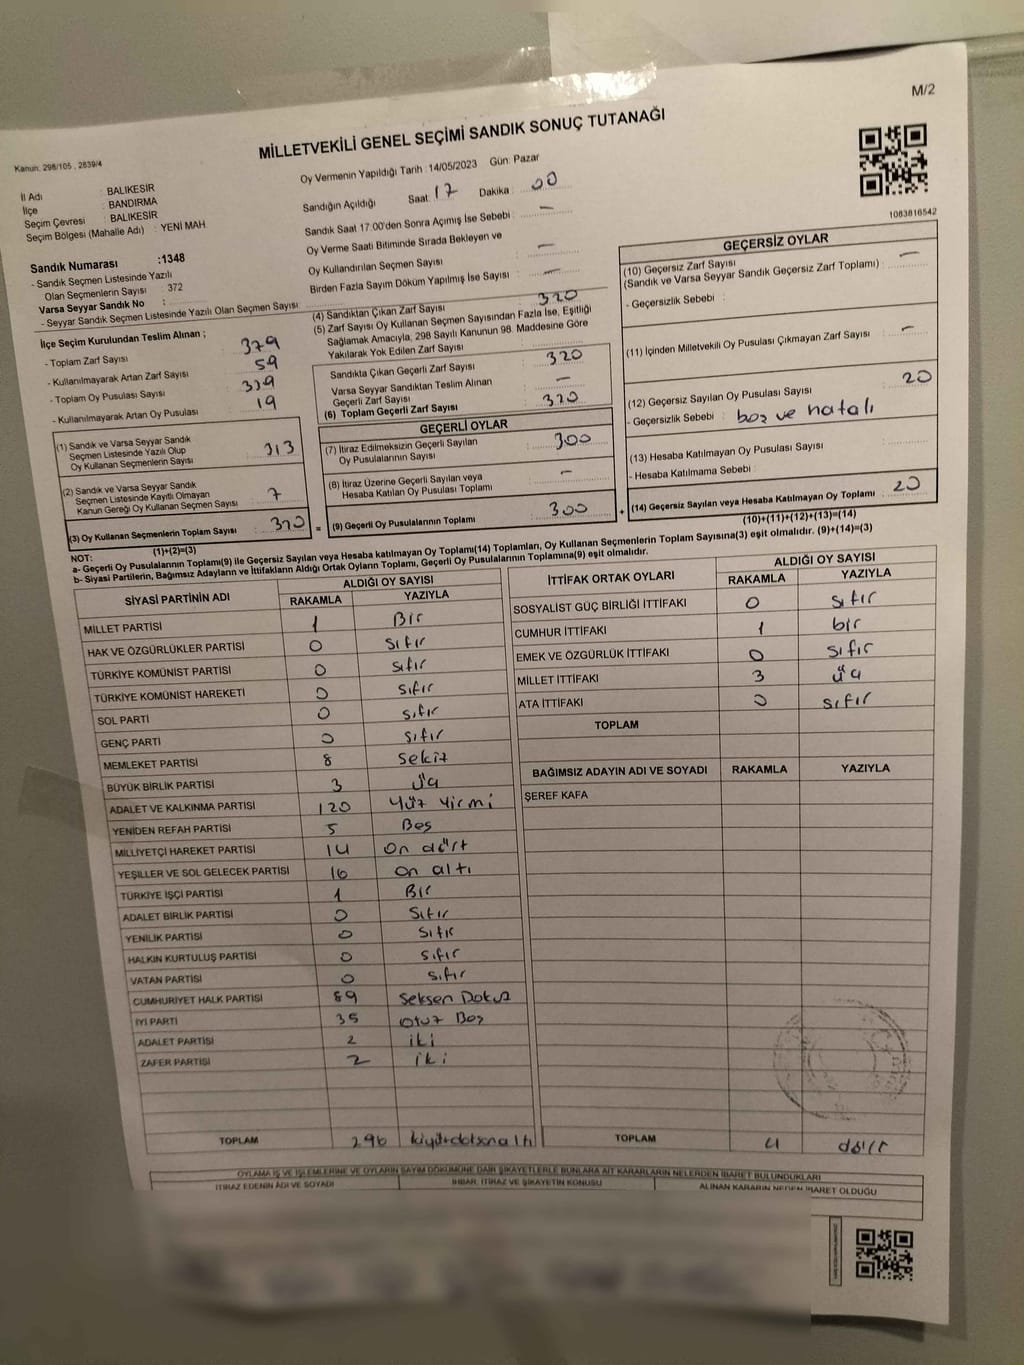 M/2
MİLLETVEKİLİ GENEL SEÇİMİ SANDIK SONUÇ TUTANAĞI
Kanun: 298/105 , 2839/4
İl Adı : BALIKESİR
İlçe : BANDIRMA
Seçim Çevresi : BALIKESİR
Seçim Bölgesi (Mahalle Adı) : YENİ MAH
Sandık Numarası :1348
- Sandık Seçmen Listesinde Yazılı
Olan Seçmenlerin Sayısı : 372
Varsa Seyyar Sandık No :
- Seyyar Sandık Seçmen Listesinde Yazılı Olan Seçmen Sayısı:
Oy Vermenin Yapıldığı Tarih :14/05/2023 Gün: Pazar
Sandığın Açıldığı Saat: 17 Dakika : 00
Sandık Saat 17.00'den Sonra Açılmış İse Sebebi : —
Oy Verme Saati Bitiminde Sırada Bekleyen ve
Oy Kullandırılan Seçmen Sayısı : —
Birden Fazla Sayım Döküm Yapılmış İse Sayısı : —
1083816542
İlçe Seçim Kurulundan Teslim Alınan ;
- Toplam Zarf Sayısı : 379
- Kullanılmayarak Artan Zarf Sayısı : 59
- Toplam Oy Pusulası Sayısı : 339
- Kullanılmayarak Artan Oy Pusulası : 19
(1) Sandık ve Varsa Seyyar Sandık
Seçmen Listesinde Yazılı Olup
Oy Kullanan Seçmenlerin Sayısı : 313
(2) Sandık ve Varsa Seyyar Sandık
Seçmen Listesinde Kayıtlı Olmayan
Kanun Gereği Oy Kullanan Seçmen Sayısı : 7
(3) Oy Kullanan Seçmenlerin Toplam Sayısı : 320
(1)+(2)=(3)
(4) Sandıktan Çıkan Zarf Sayısı : 320
(5) Zarf Sayısı Oy Kullanan Seçmen Sayısından Fazla İse, Eşitliği
Sağlamak Amacıyla, 298 Sayılı Kanunun 98. Maddesine Göre
Yakılarak Yok Edilen Zarf Sayısı :
Sandıkta Çıkan Geçerli Zarf Sayısı : 320
Varsa Seyyar Sandıktan Teslim Alınan
Geçerli Zarf Sayısı : —
(6) Toplam Geçerli Zarf Sayısı : 320
GEÇERLİ OYLAR
(7) İtiraz Edilmeksizin Geçerli Sayılan
Oy Pusulalarının Sayısı : 300
(8) İtiraz Üzerine Geçerli Sayılan veya
Hesaba Katılan Oy Pusulası Toplamı : —
= (9) Geçerli Oy Pusulalarının Toplamı : 300
GEÇERSİZ OYLAR
(10) Geçersiz Zarf Sayısı
(Sandık ve Varsa Seyyar Sandık Geçersiz Zarf Toplamı) : —
- Geçersizlik Sebebi :
(11) İçinden Milletvekili Oy Pusulası Çıkmayan Zarf Sayısı : —
(12) Geçersiz Sayılan Oy Pusulası Sayısı : 20
- Geçersizlik Sebebi : boş ve hatalı
(13) Hesaba Katılmayan Oy Pusulası Sayısı :
- Hesaba Katılmama Sebebi :
+ (14) Geçersiz Sayılan veya Hesaba Katılmayan Oy Toplamı : 20
(10)+(11)+(12)+(13)=(14)
NOT:
a- Geçerli Oy Pusulalarının Toplamı(9) ile Geçersiz Sayılan veya Hesaba katılmayan Oy Toplamı(14) Toplamları, Oy Kullanan Seçmenlerin Toplam Sayısına(3) eşit olmalıdır. (9)+(14)=(3)
b- Siyasi Partilerin, Bağımsız Adayların ve İttifakların Aldığı Ortak Oyların Toplamı, Geçerli Oy Pusulalarının Toplamına(9) eşit olmalıdır.
SİYASİ PARTİNİN ADI ALDIĞI OY SAYISI
RAKAMLA YAZIYLA
MİLLET PARTİSİ 1 Bir
HAK VE ÖZGÜRLÜKLER PARTİSİ 0 Sıfır
TÜRKİYE KOMÜNİST PARTİSİ 0 Sıfır
TÜRKİYE KOMÜNİST HAREKETİ 0 Sıfır
SOL PARTİ 0 Sıfır
GENÇ PARTİ 0 Sıfır
MEMLEKET PARTİSİ 8 Sekiz
BÜYÜK BİRLİK PARTİSİ 3 Üç
ADALET VE KALKINMA PARTİSİ 120 Yüz Yirmi
YENİDEN REFAH PARTİSİ 5 Beş
MİLLİYETÇİ HAREKET PARTİSİ 14 On dört
YEŞİLLER VE SOL GELECEK PARTİSİ 16 On altı
TÜRKİYE İŞÇİ PARTİSİ 1 Bir
ADALET BİRLİK PARTİSİ 0 Sıfır
YENİLİK PARTİSİ 0 Sıfır
HALKIN KURTULUŞ PARTİSİ 0 Sıfır
VATAN PARTİSİ 0 Sıfır
CUMHURİYET HALK PARTİSİ 89 Seksen Dokuz
İYİ PARTİ 35 Otuz Beş
ADALET PARTİSİ 2 iki
ZAFER PARTİSİ 2 iki
TOPLAM 296 ikiyüzdoksanaltı
İTTİFAK ORTAK OYLARI ALDIĞI OY SAYISI
RAKAMLA YAZIYLA
SOSYALİST GÜÇ BİRLİĞİ İTTİFAKI 0 sıfır
CUMHUR İTTİFAKI 1 bir
EMEK VE ÖZGÜRLÜK İTTİFAKI 0 sıfır
MİLLET İTTİFAKI 3 üç
ATA İTTİFAKI 0 sıfır
TOPLAM
BAĞIMSIZ ADAYIN ADI VE SOYADI RAKAMLA YAZIYLA
ŞEREF KAFA
TOPLAM 4 dört
OYLAMA İŞ VE İŞLEMLERİNE VE OYLARIN SAYIM DÖKÜMÜNE DAİR ŞİKAYETLERLE BUNLARA AİT KARARLARIN NELERDEN İBARET BULUNDUKLARI
İTİRAZ EDENİN ADI VE SOYADI İHBAR, İTİRAZ VE ŞİKAYETİN KONUSU ALINAN KARARIN NEDEN İBARET OLDUĞU